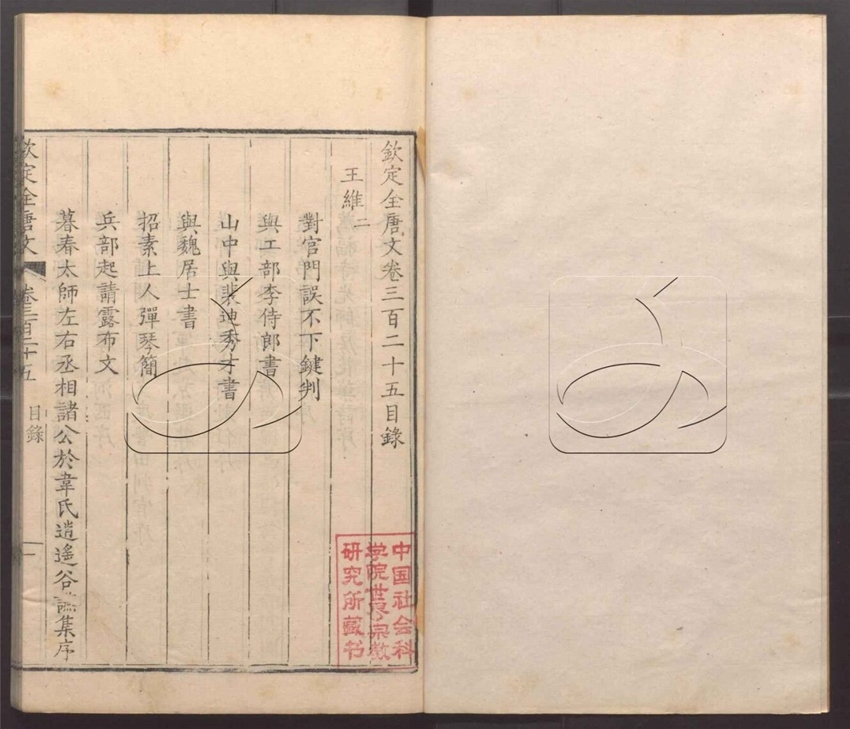 欽定全唐文卷三百二十五目錄
王維二
對官門誤不下鍵判
與工部李侍郎書
山中與裴迪秀才書
與魏居士書
招素上人彈琴簡
兵部起請露布文
暮春太師左右丞相諸公於韋氏逍遙谷讌集序
欽定全唐文 卷三百二十五 目錄 一
中国社会科
学院世界宗教
研究所藏书